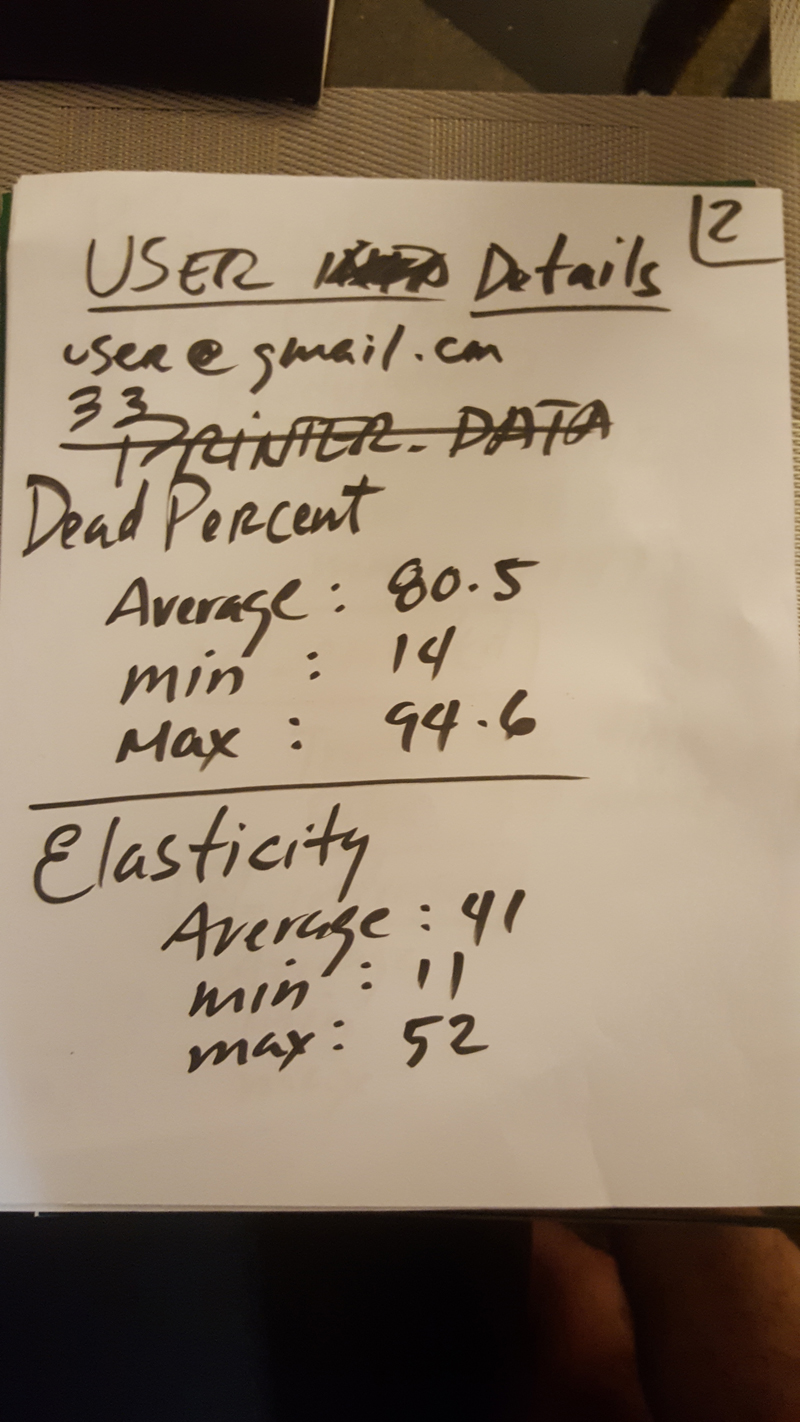 2
USER Details
user@gmail.com
33
PRINTER. DATA
Dead Percent
Average: 80.5
min : 14
Max : 94.6
Elasticity
Average: 41
min: 11
max: 52